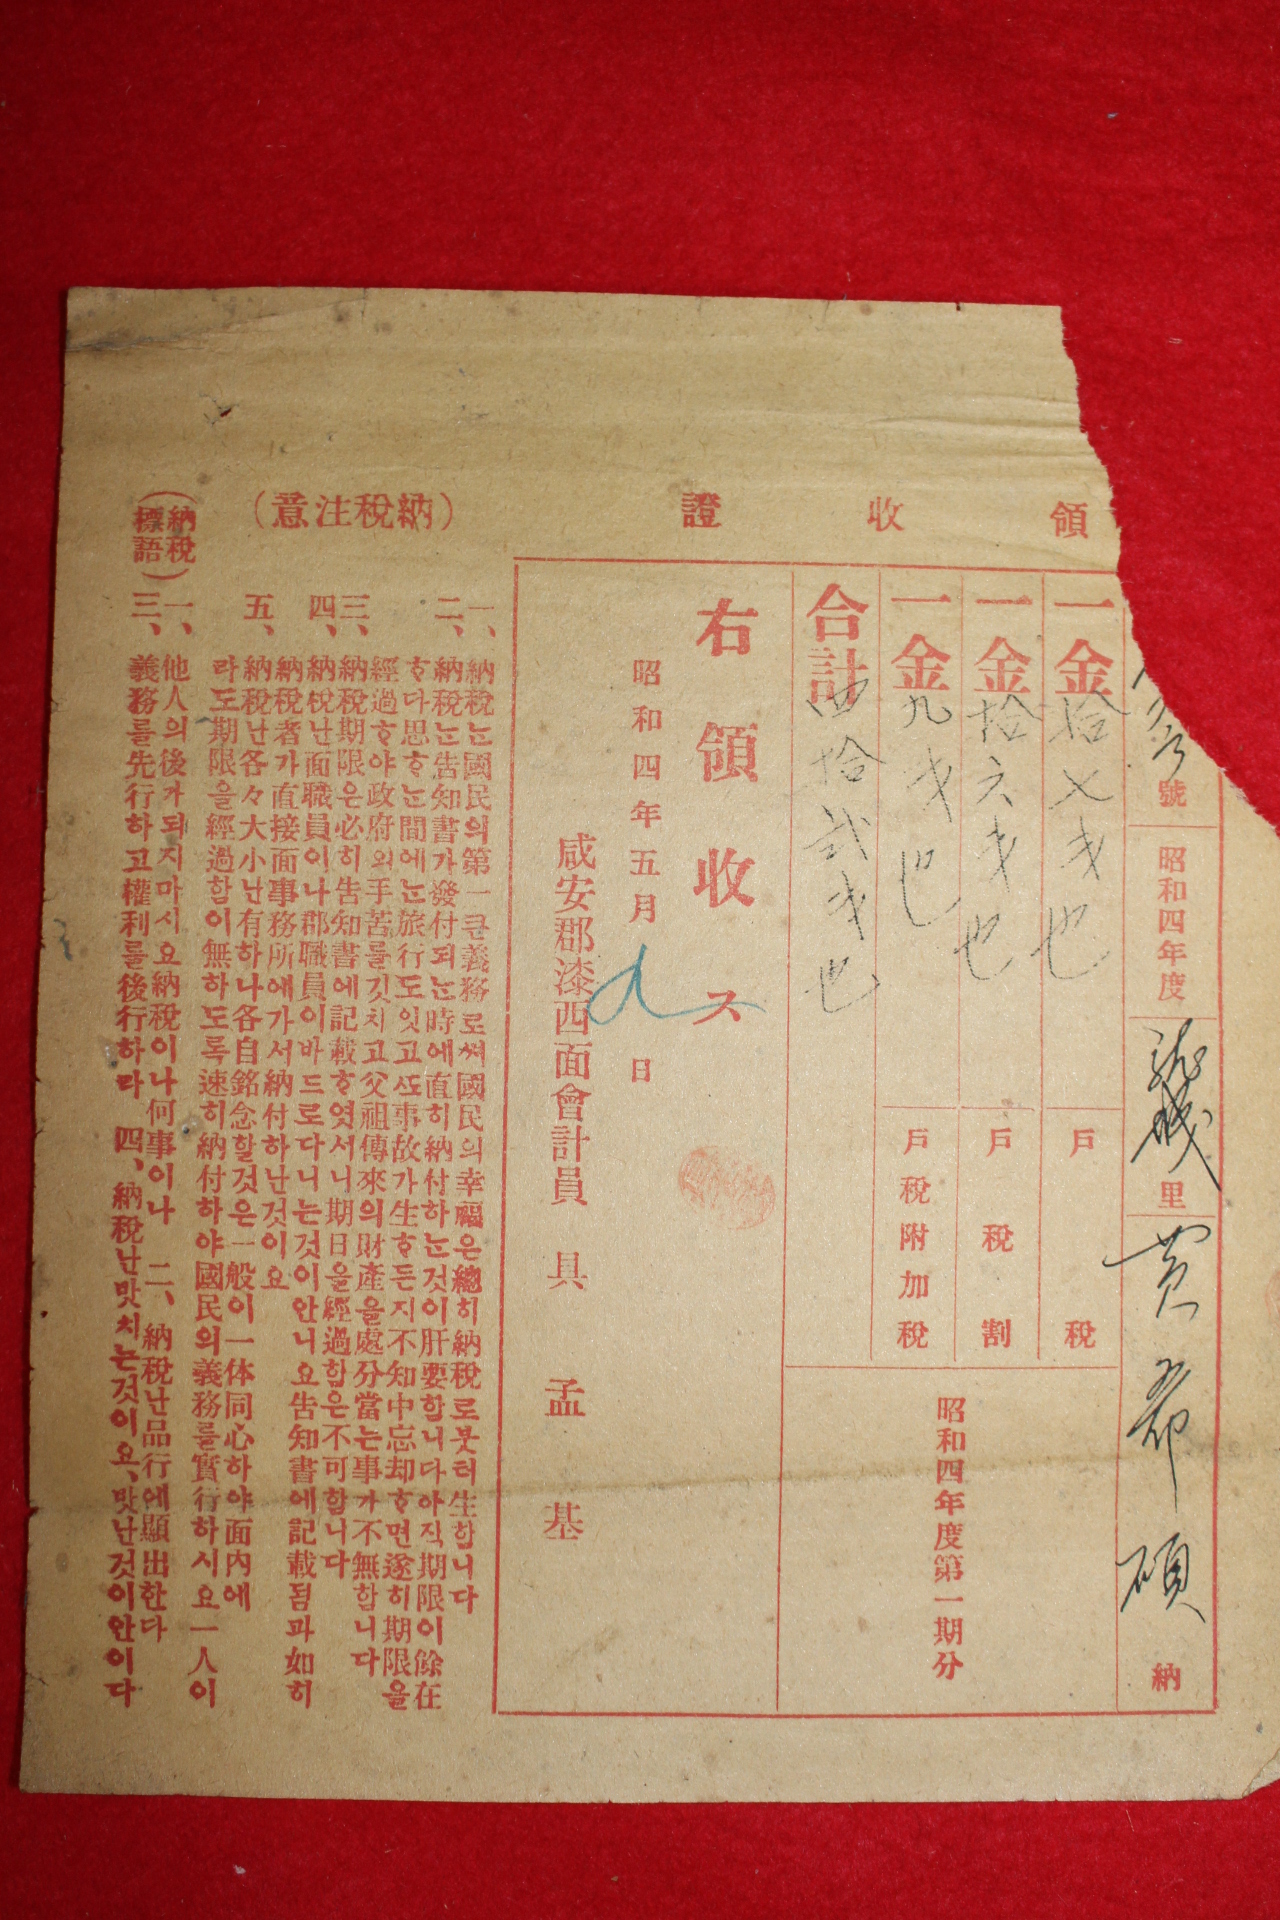 領收證
號 昭和四年度 里 黃 碩 納
一金拾七戋也 戶稅
一金拾六戋也 戶稅割
一金九戋也 戶稅附加稅
合計四拾弐戋也
昭和四年度第一期分
右領收ス
昭和四年五月 日
咸安郡漆西面會計員 具孟基
(納稅注意)
一、納稅는國民의第一큰義務로써國民의幸福은總히納稅로붓터生합니다
二、納稅는告知書가發付되는時에直히納付하는것이肝要합니다아직期限이餘在
ᄒᆞ다思ᄒᆞ는間에는旅行도잇고ᄯᅩ事故가生ᄒᆞ든지不知中忘却ᄒᆞ면遂히期限을
經過ᄒᆞ야政府의手苦를깃치고父祖傳來의財產을處分當는事가不無합니다
三、納稅期限은必히告知書에記載ᄒᆞ엿서니期日을經過함은不可합니다
四、納稅난面職員이나郡職員이바드로다니는것이안니요告知書에記載됨과如히
納稅者가直接面事務所에가서納付하난것이요
五、納稅난各々大小난有하나各自銘念할것은一般이一体同心하야面內에
라도期限을經過함이無하도록速히納付하야國民의義務를實行하시요一人이
(納稅標語)
一、他人의後가되지마시요納稅이나何事이나 二、納稅난品行에顯出한다
三、義務를先行하고權利를後行하라 四、納稅난맛치는것이요、맛난것이안이다